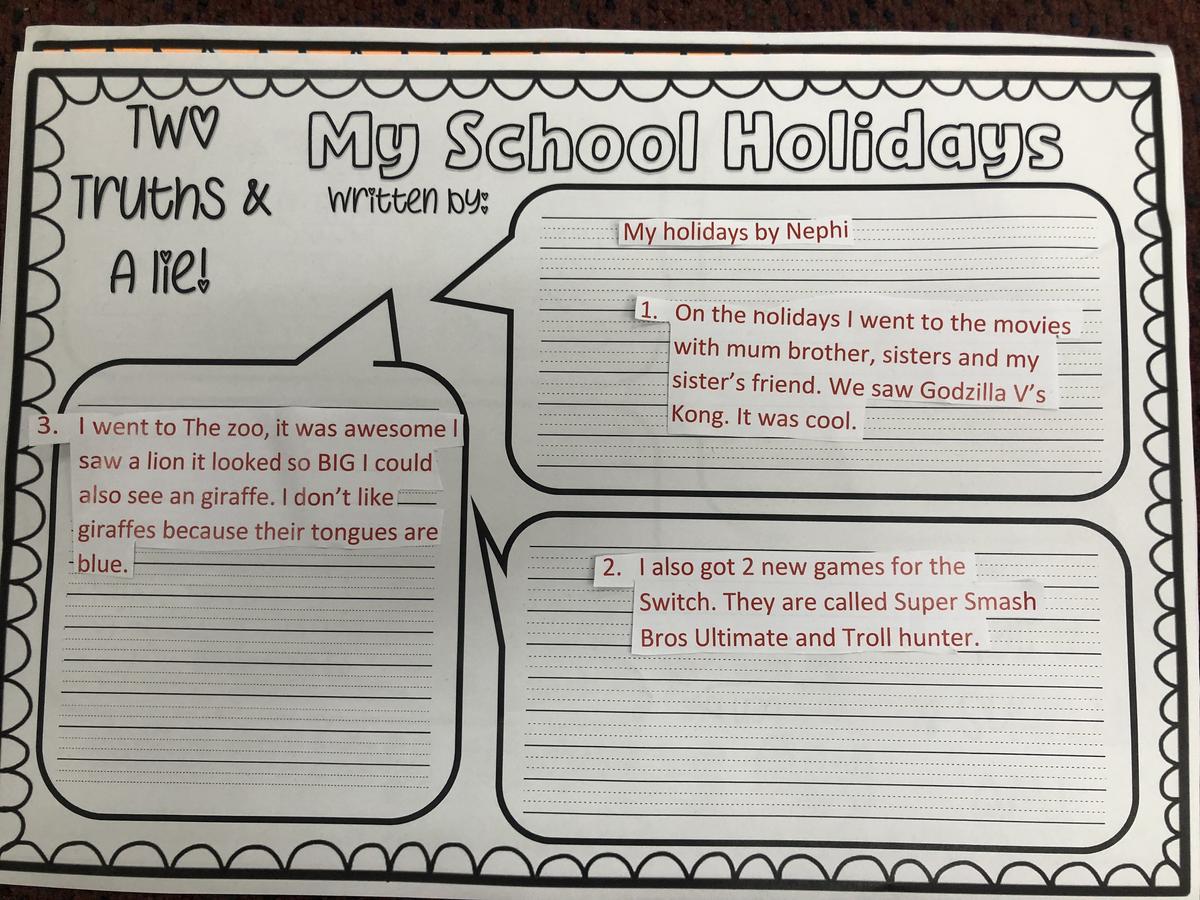 TWO
Truths &
A lie!
My School Holidays
written by:
My holidays by Nephi
1. On the nolidays I went to the movies
with mum brother, sisters and my
sister’s friend. We saw Godzilla V’s
Kong. It was cool.
3. I went to The zoo, it was awesome I
saw a lion it looked so BIG I could
also see an giraffe. I don’t like
giraffes because their tongues are
blue.
2. I also got 2 new games for the
Switch. They are called Super Smash
Bros Ultimate and Troll hunter.